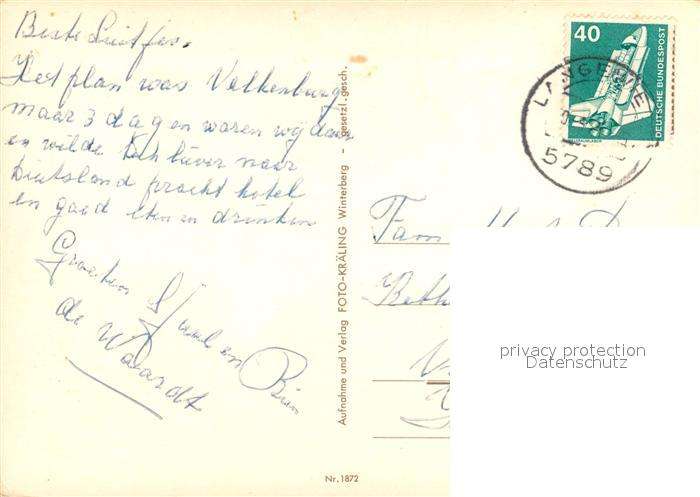 Beste Luitjes.
Het plan was Valkenburg
maar 3 dagen waren wij daar
en wilde toch liever naar
Duitsland pracht hotel
en goed eten en drinken
Groeten
en Bien
de Waardt
Aufnahme und Verlag FOTO-KRÄLING Winterberg - gesetzl. gesch.
Nr. 1872
40
DEUTSCHE BUNDESPOST
5789
Fam
privacy protection
Datenschutz